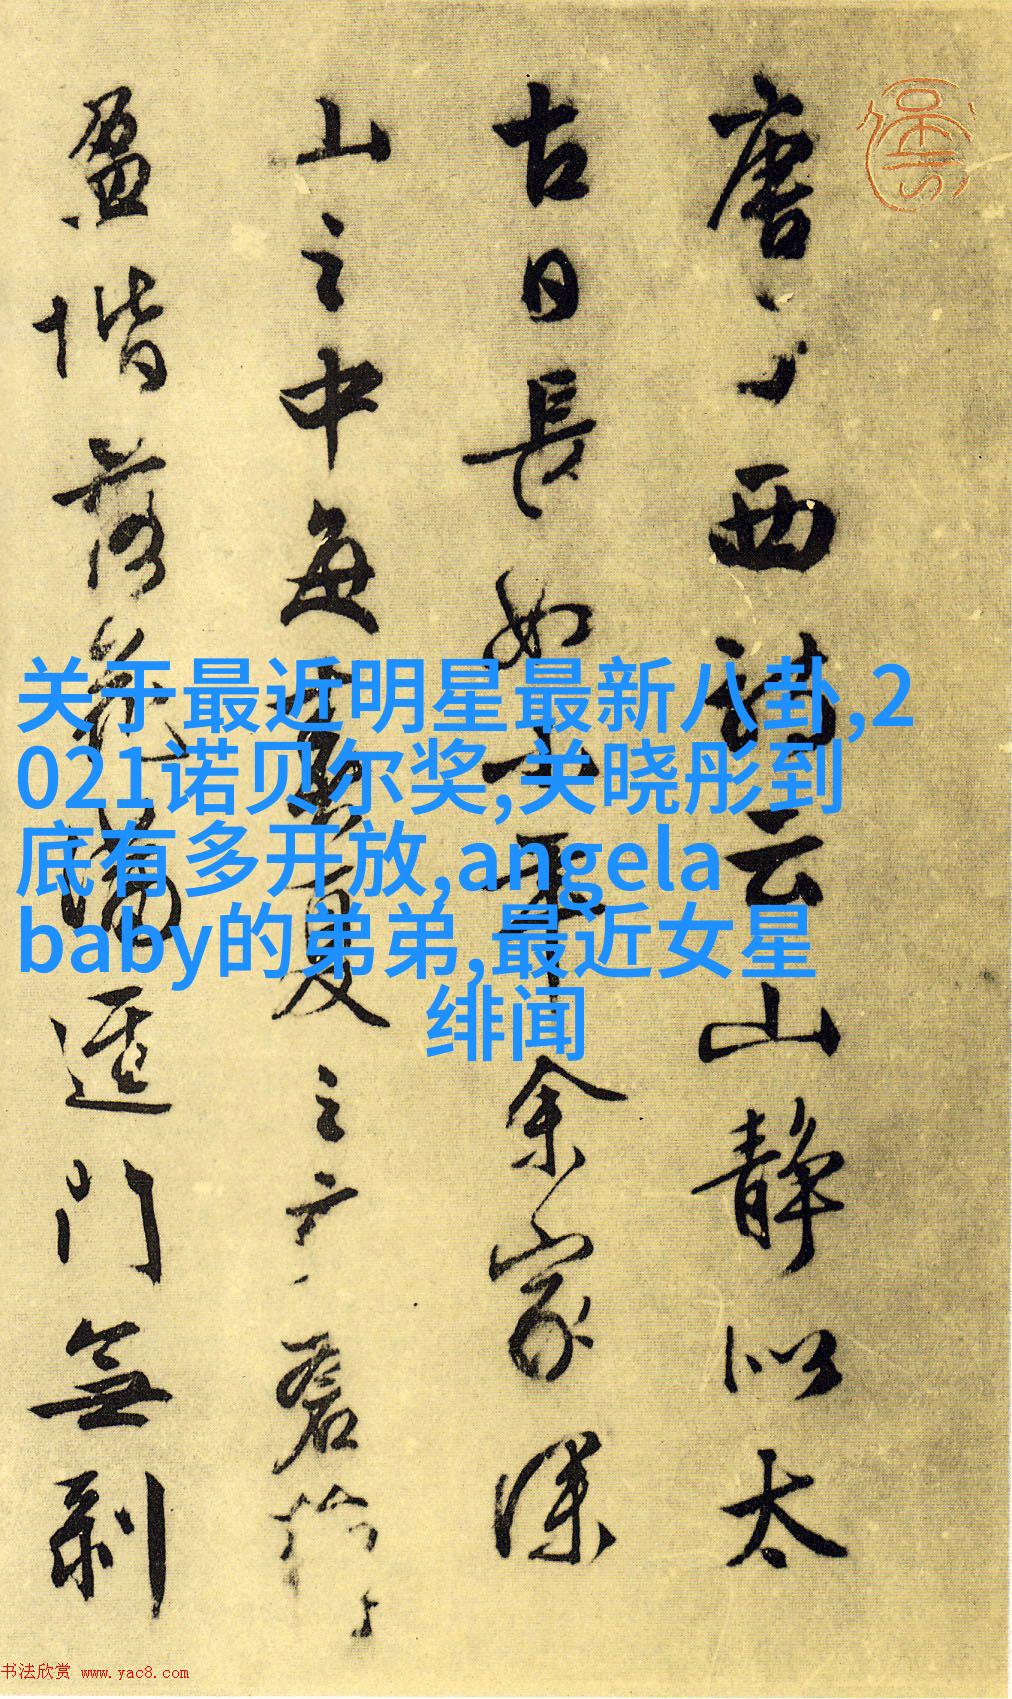 唐子西詩云山静似太
古日長如小年余家深
山之中每春夏之交蒼蘚
盈階落花滿逕門無剥
关于最近明星最新八卦,2
021诺贝尔奖,关晓彤到
底有多开放,angela
baby的弟弟,最近女星
绯闻
书法欣赏 www.yac8.com